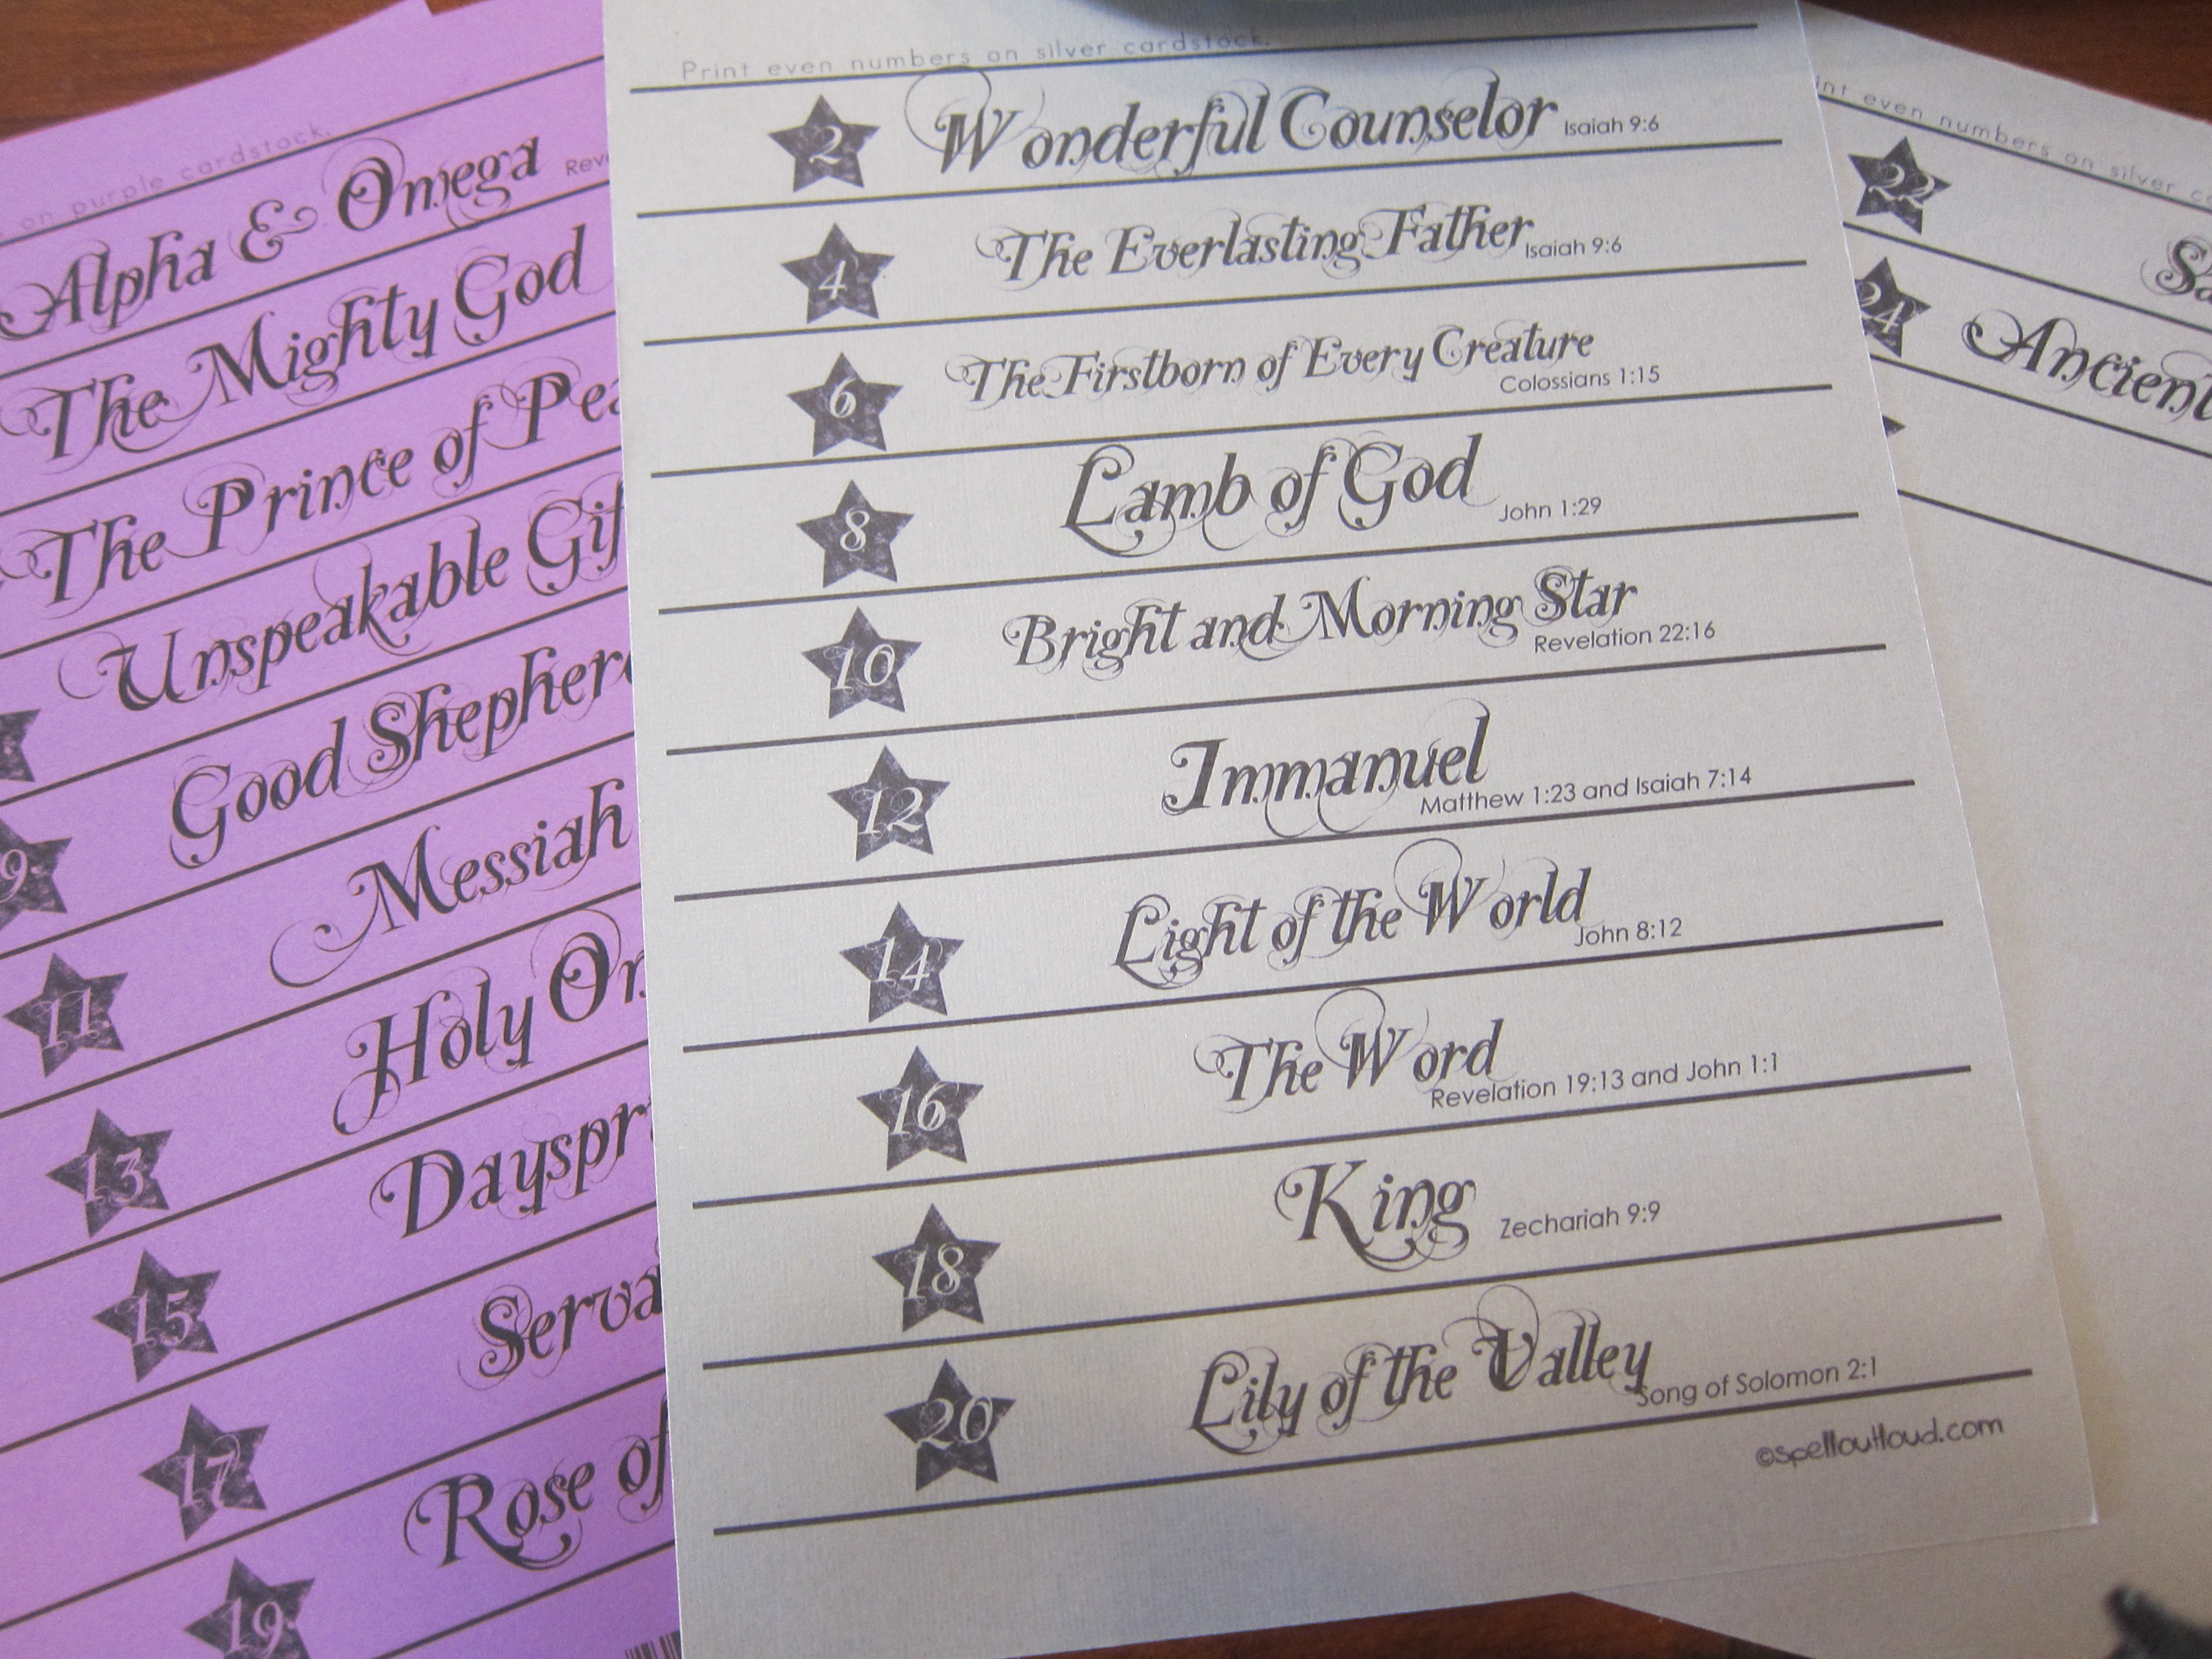 on purple cardstock.
Alpha & Omega
The Mighty God
The Prince of
Unspeakable
Good
9 Messiah
11 Holy
13
15
17 Rose of
19
Print even numbers on silver cardstock.
2 Wonderful Counselor Isaiah 9:6
4 The Everlasting Father Isaiah 9:6
6 The Firstborn of Every Creature
Colossians 1:15
8 Lamb of God John 1:29
10 Bright and Morning Star
Revelation 22:16
12 Immanuel
Matthew 1:23 and Isaiah 7:14
14 Light of the World
John 8:12
16 The Word
Revelation 19:13 and John 1:1
18 King Zechariah 9:9
20 Lily of the Valley
Song of Solomon 2:1
©spelloutloud.com
even numbers on silver
22
24 Ancient